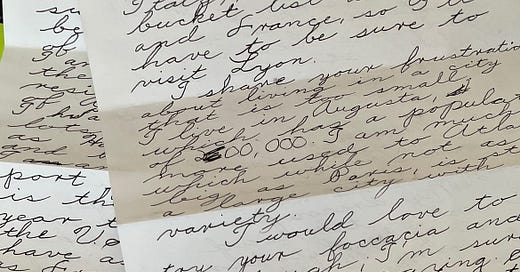 Italy,
bucket list
and France, so I
have to be sure to
visit Lyon.
I share your frustratio
about living in a city
that is too small,
I live in Augusta,
which has a popula
of 00,000. I am much
more used to Atla
which while not as
big as Paris, is st
a large city with
variety.
I would love to
try your foccacia and
I'm sur
be
of
the
and
port
is th
year t
the U.S
have a